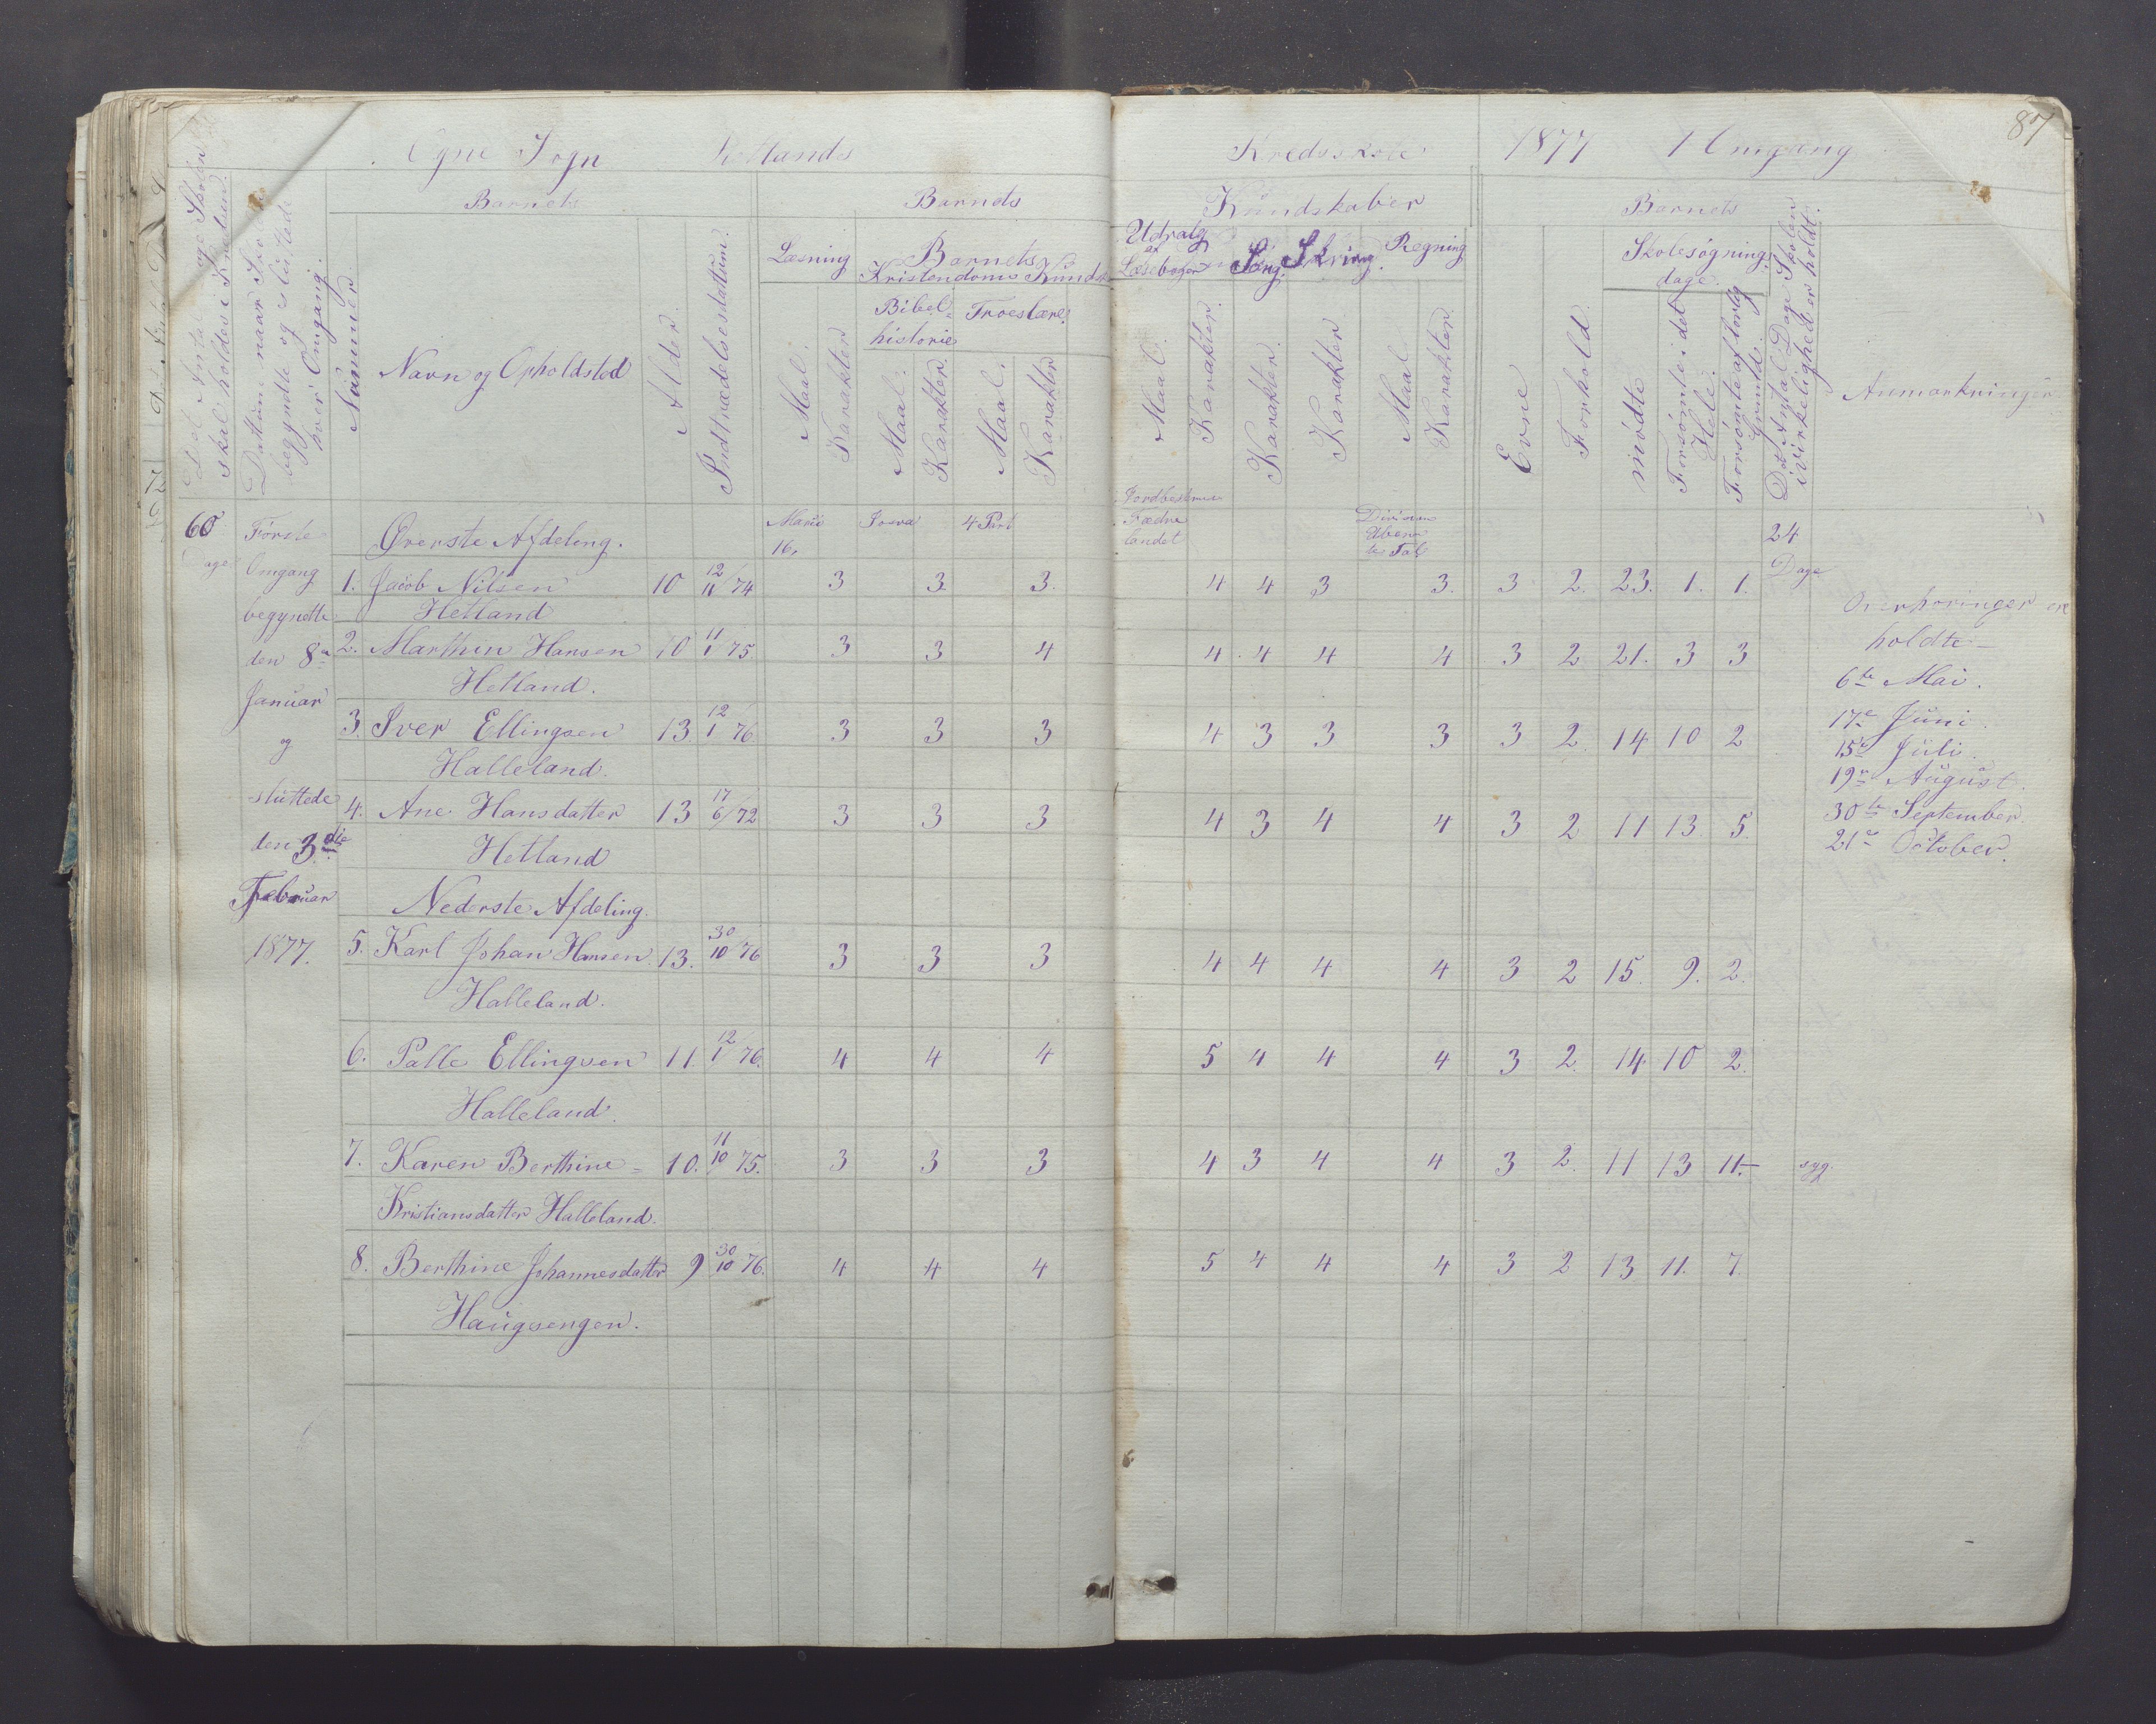 87
Ogne Sogn Kredsskole 1877 1 Omgang
Barnets Barnets Kundskaber Barnets
Det Antal Dage Skolen skal holdes i Kredsen.
Datum naar Skolen begyndte og sluttede hver Omgang.
Nummer
Navn og Opholdsted
Alder.
Indtrædelsesdatum.
Læsning
Maal. Karakter
Barnets Kristendoms Kundsk
Bibel historie
Maal. Karakter
Troeslære.
Maal. Karakter
Udvalg af Læsebogen
Maal. Karakter.
Sang. Karakter.
Skrivng. Karakter
Regning
Maal Karakter
Evne
Forhold.
Skolesøgning dage.
mødte
Forsømte i det Hele.
Forsømte af lovlig Grund.
Det Antal Dage Skolen i virkeligheden er holdt.
Anmærkninger
60 Første Omgang begyndte den 8de Januar og sluttede den 3die Februar 1877.
Øverste Afdeling. Marie 16, Josva 4 Part Jordbeskriv Fædre landet Division Ubenæ te Tal 24 Dage
1. Jacob Nilsen 10 12/11 74 3 3. 3. 4 4 3 3. 3 2. 23. 1. 1.
Hetland
2. Marthin Hansen 10 11/1 75. 3 3 4 4 4 4 4 3 2 21. 3 3
Hetland.
3. Iver Ellingsen 13. 12/1 76 3 3 3 4 3 3 3 3 2. 14 10 2
Halleland.
4. Ane Hansdatter 13 17/6 72 3 3 3 4 3 4 4 3 2 11 13 5.
Hetland
Nederste Afdeling.
5. Karl Johan Hansen 13. 30/10 76 3 3 3 4 4 4 4 3 2 15. 9. 2.
Halleland.
6. Palle Ellingsen 11. 12/1 76. 4 4 4 5 4 4 4 3 2. 14 10 2.
Halleland.
7. Karen Berthine = 10. 11/10 75. 3 3 3 4 3 4 4 3 2. 11 13 11.— syg.
Kristiansdatter Halleland.
8. Berthine Johannesdatter 9 30/10 76. 4 4 4 5 4 4 4 3 2 13 11. 7.
Haugsengen.
Overhøringer ere
holdte—
6te Mai.
17e Juni.
15e Juli.
19e August.
30te September.
21e October.